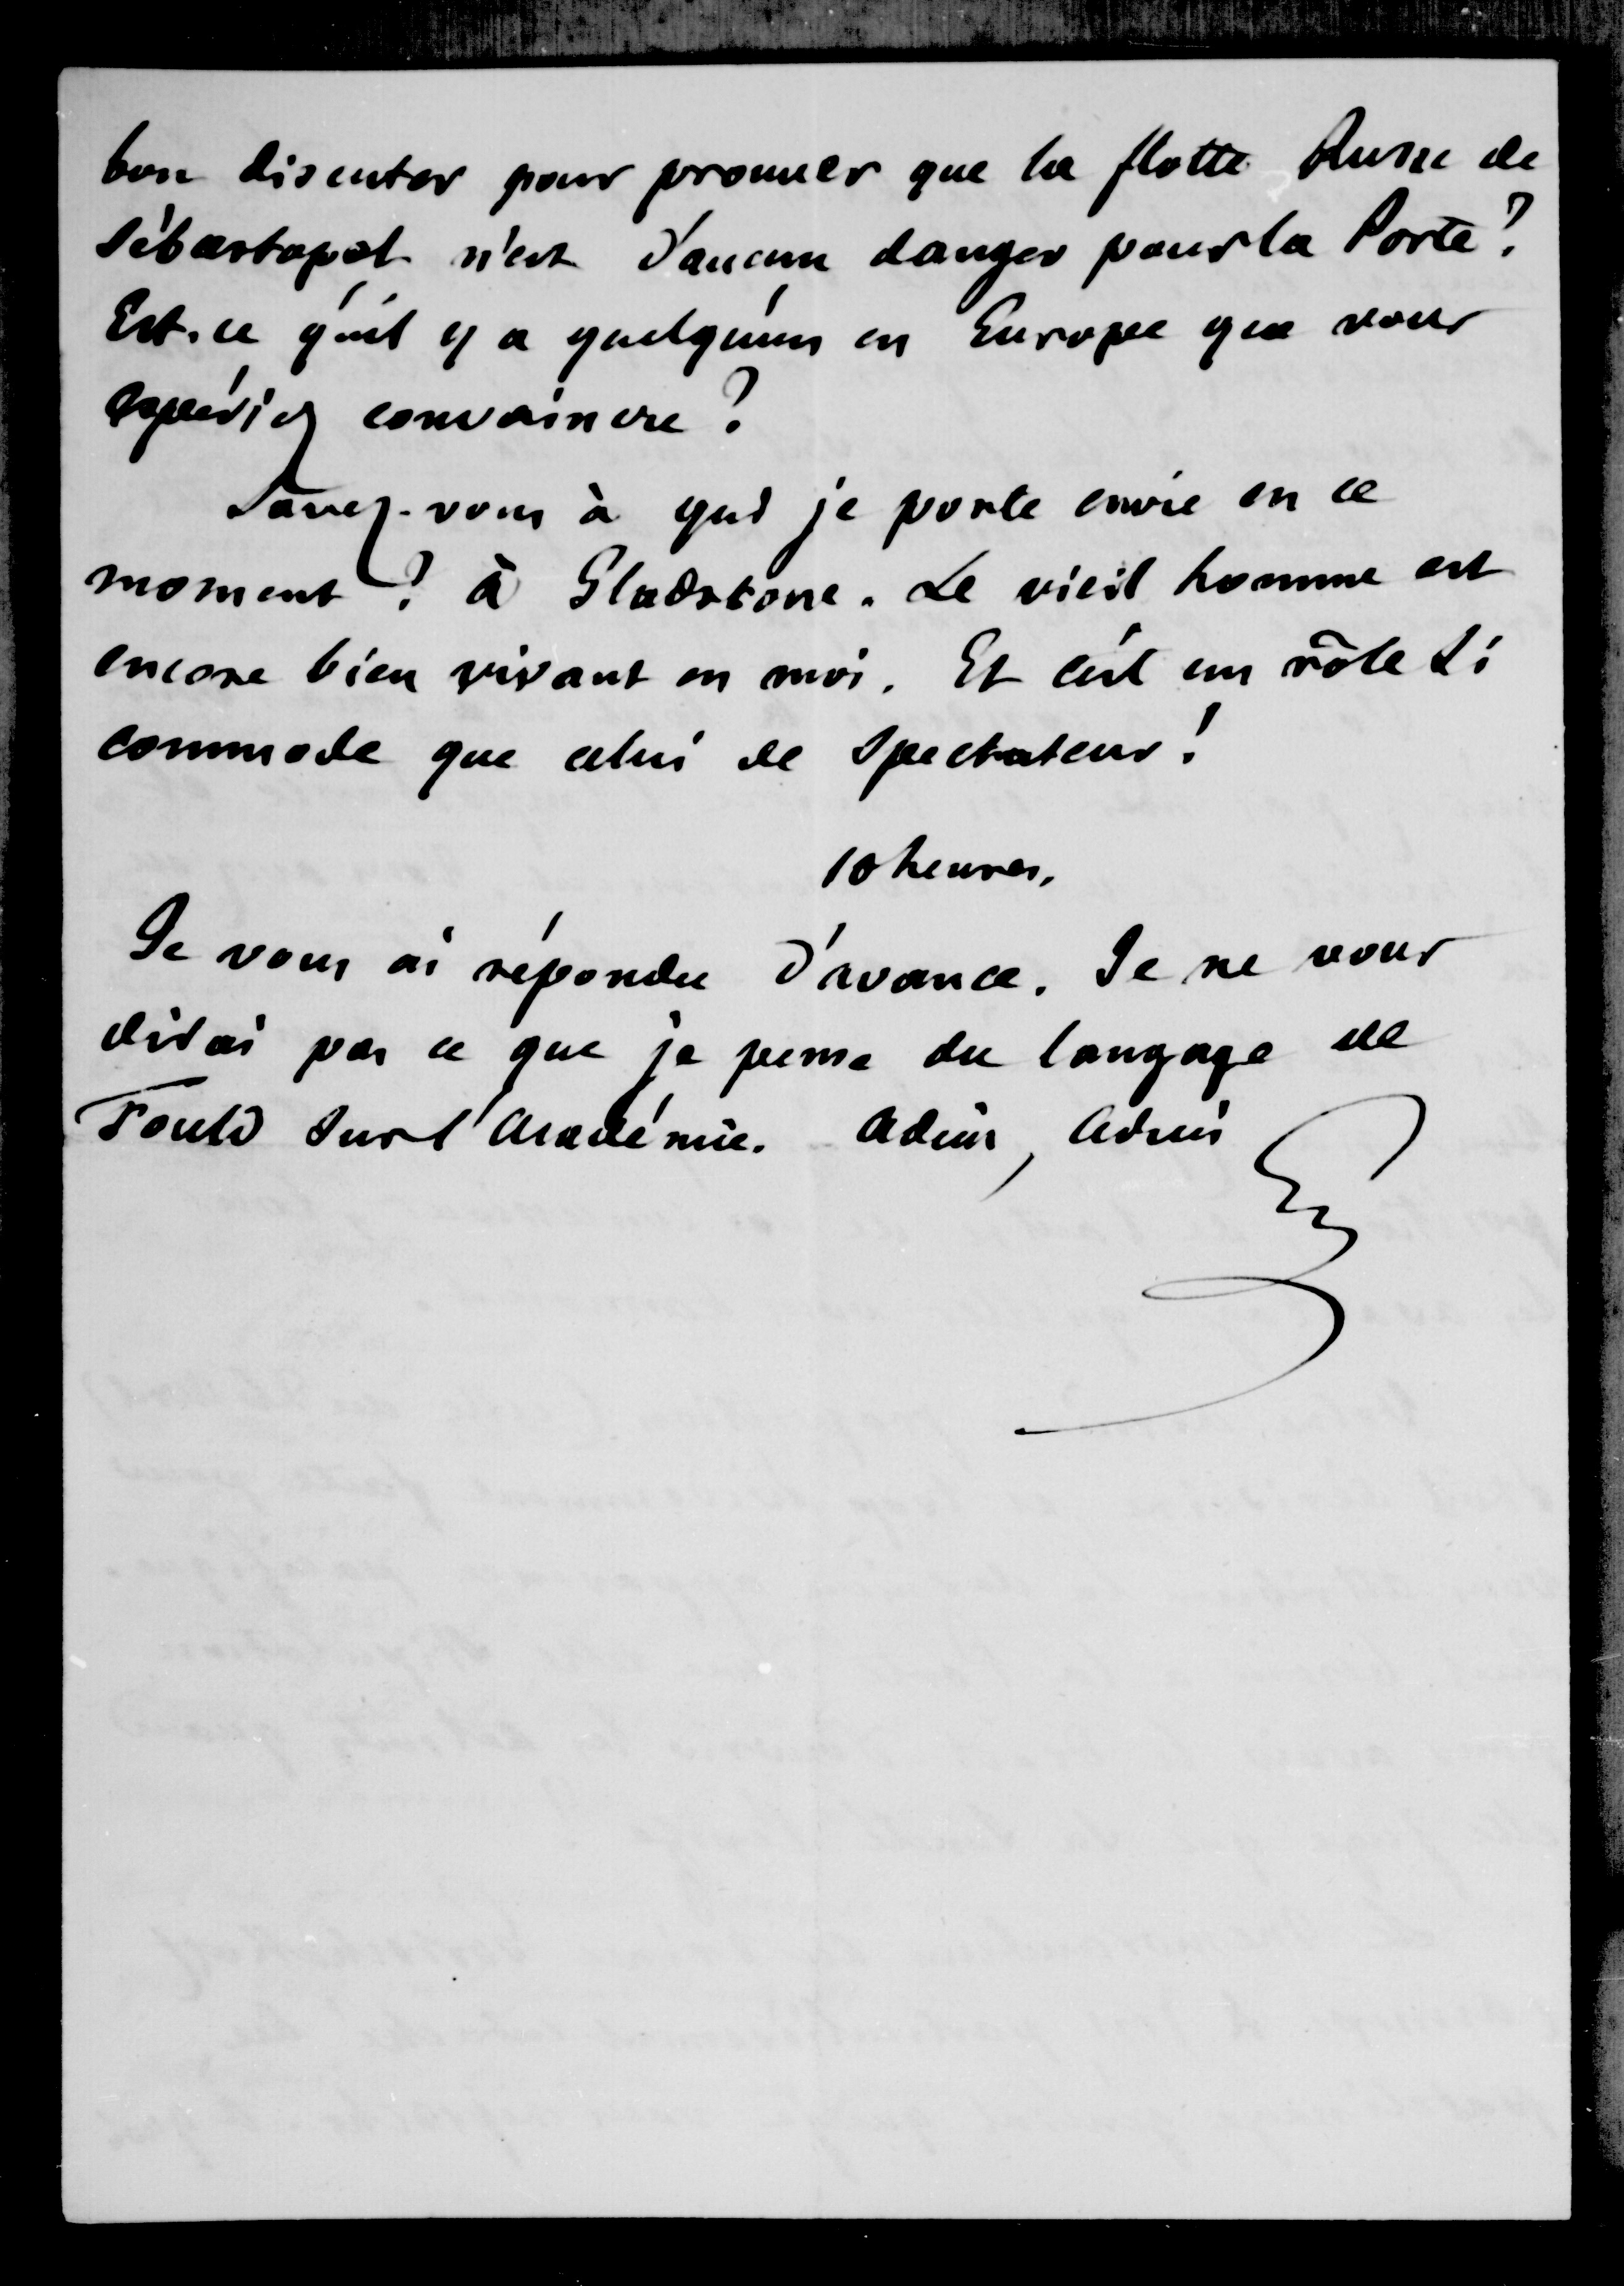 bon discuter pour prouver que la flotte Russe de
Sébastopol n'est d'aucun danger pour la Porte ?
Est-ce qu'il y a quelqu'un en Europe que vous
espériez convaincre ?
Savez-vous à qui je porte envie en ce
moment ? à Gladstone. Le vieil homme est
encore bien vivant en moi. Et c'est un rôle si
commode que celui de spectateur !
10 heures.
Je vous ai répondu d'avance. Je ne vous
dirai pas ce que je pense du langage de
Fould sur l'Académie. Adieu, Adieu